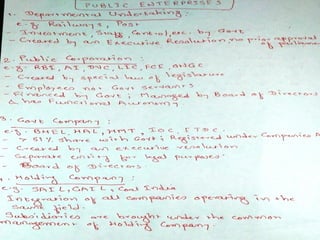 PUBLIC ENTERPRISES
1. Departmental Undertaking:
e.g. Railways, Post
- Investment, Staff, Control, etc. by Govt
- Created by an Executive Resolution, no prior approval of parliament
2. Public Corporation:
e.g. RBI, AI, DVC, LIC, FCI, ONGC
- Created by special law of legislature
- Employees not Govt servants
- Financed by Govt; Managed by Board of Directors
& has Functional Autonomy
3. Govt Company:
e.g. BHEL, HAL, HMT, IOC, ITDC.
- > 51% Share with Govt; Registered under Companies A
- Created by an executive resolution
- Separate entity for legal purposes
- Board of Directors
4. Holding Company:
e.g. SAIL, GAIL, Coal India
Integration of all companies operating in the
same field.
Subsidiaries are brought under the common
management of Holding Company.